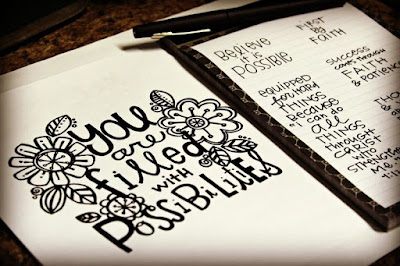 You
are
filled
with
PossibiLities
Believe
it's
Possible
EQUIPPED
for hard
THINGS
BECAUSE
"I can do
all
THINGS
THROUGH
CHRIST
WHO
STRENGTHENS
me."
FIRST
by
FAITH
SUCCESS
comes through
FAITH
& patience